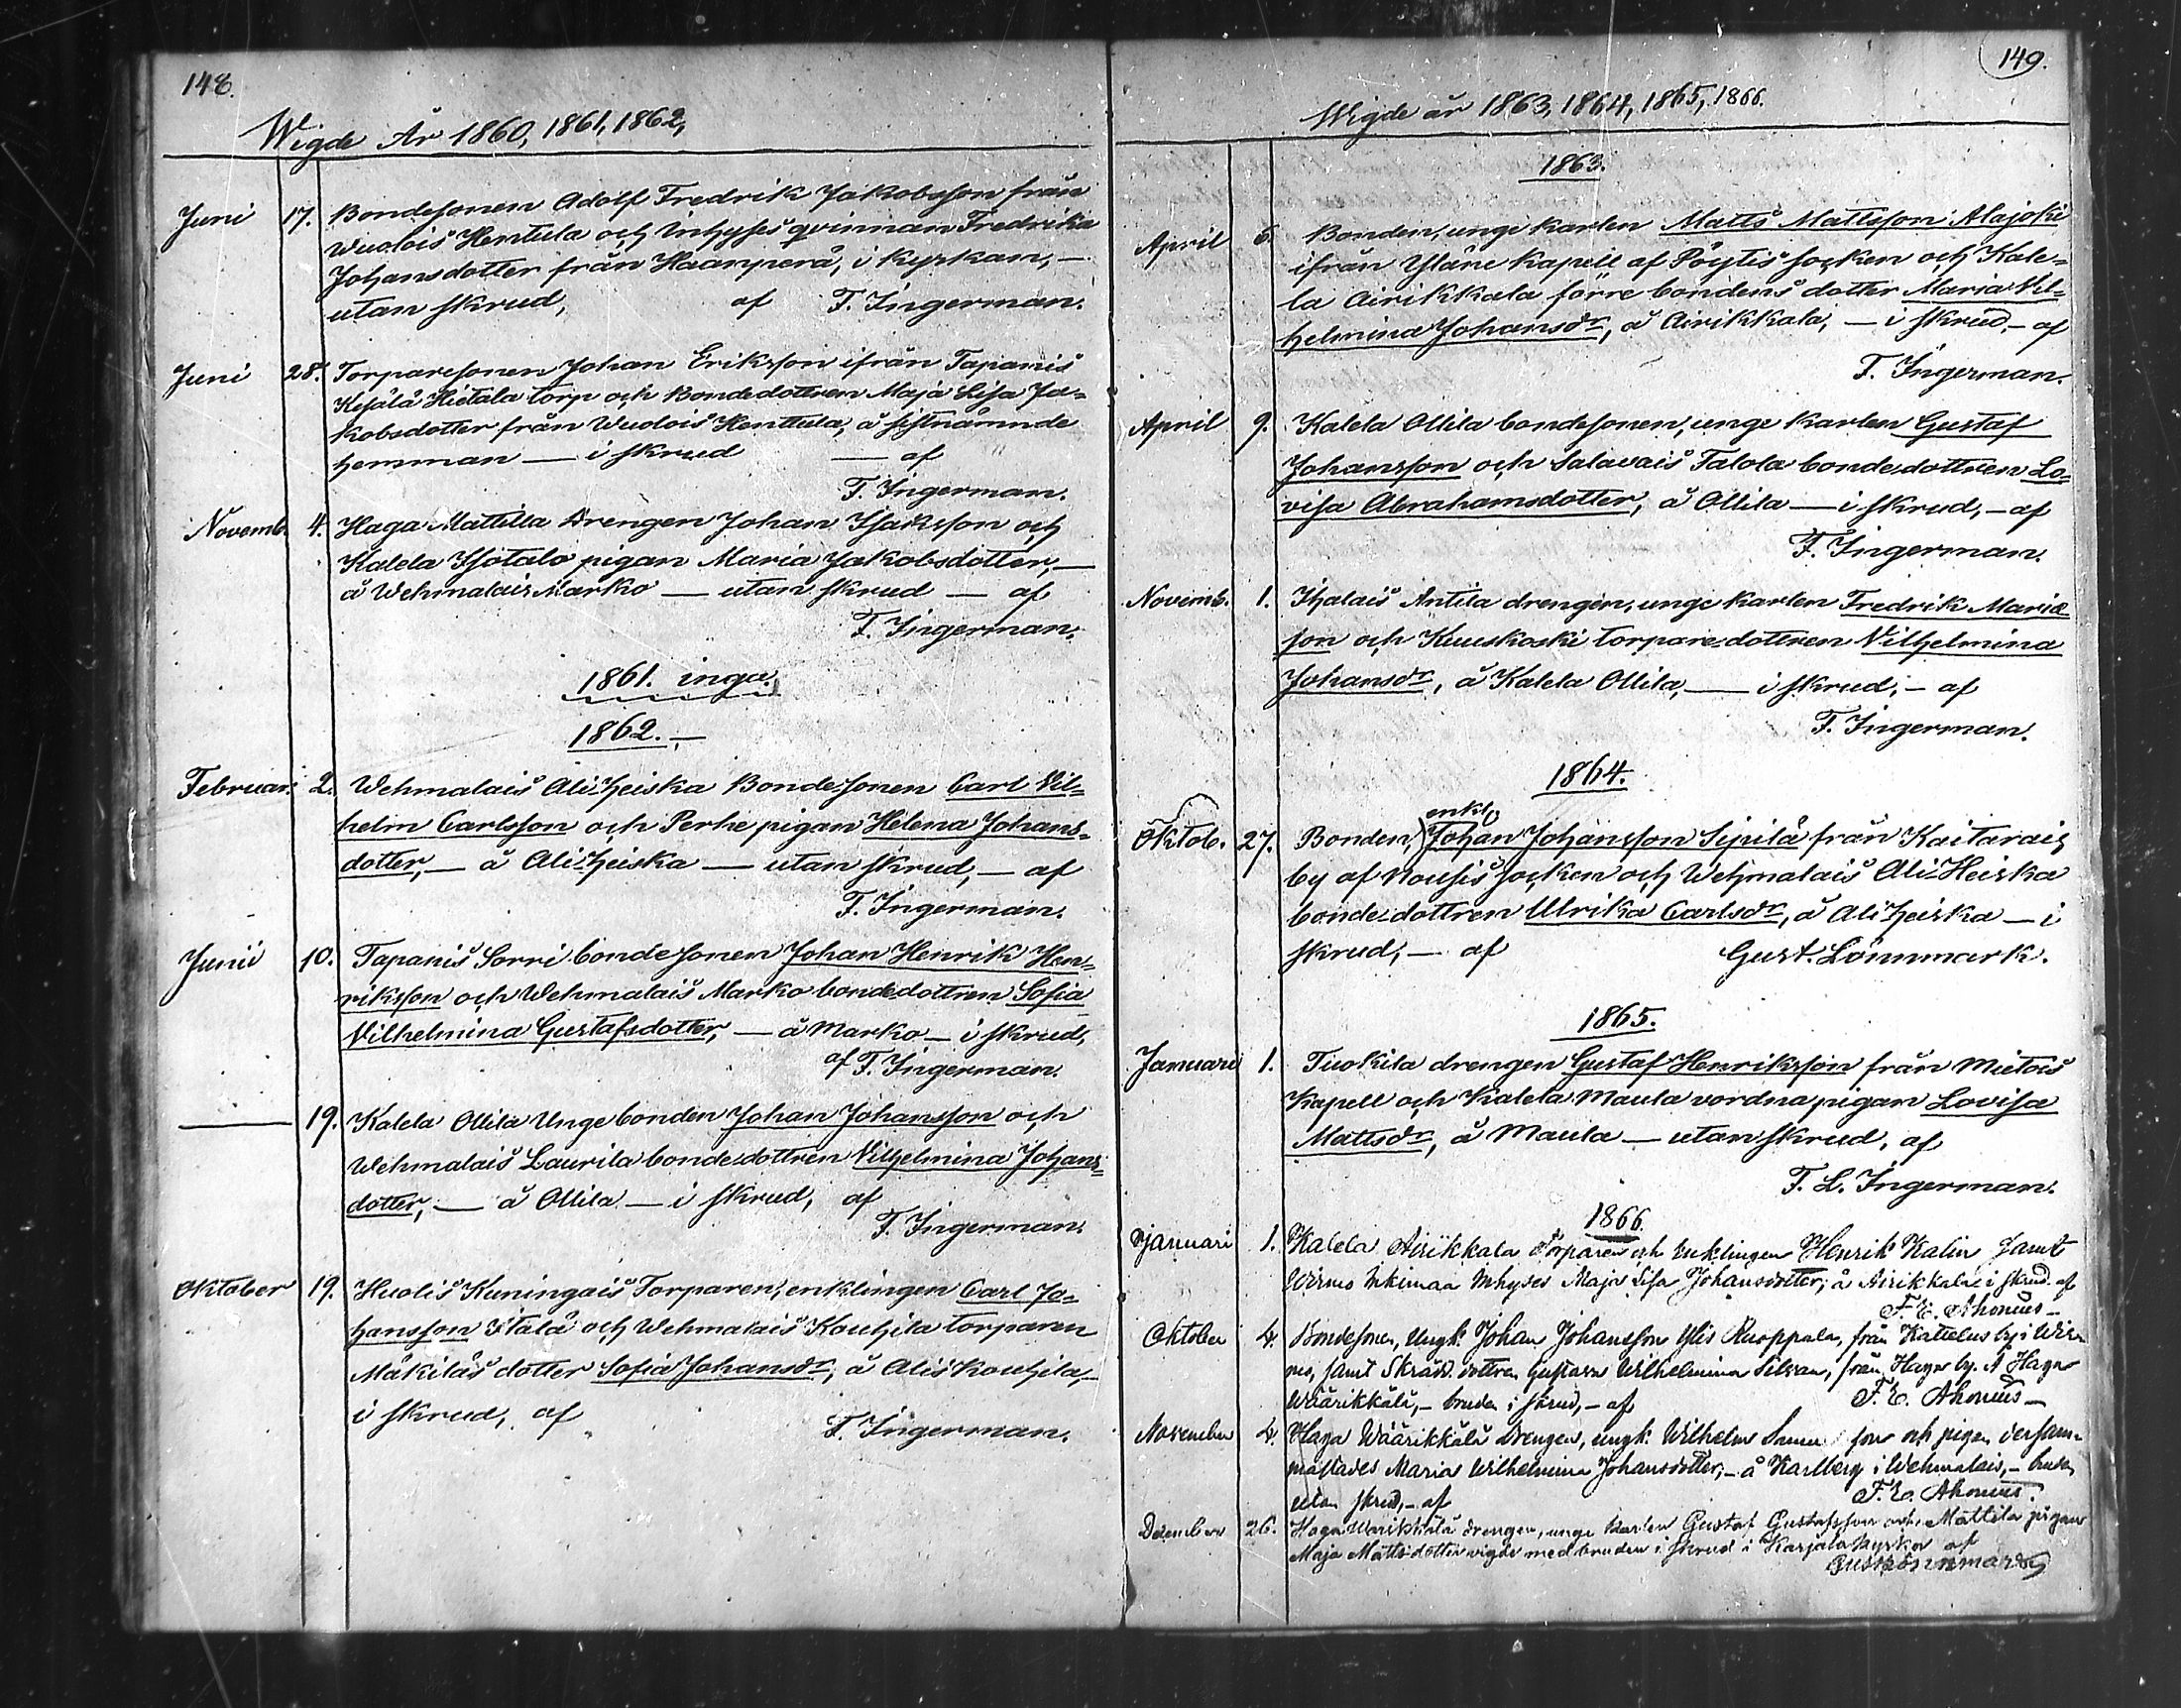 148.
Wigde År 1860, 1861, 1862,
Juni 17. Bondesonen Adolf Fredrik Jakobsson från
Wuolois Hentula och inhyses qvinnan Fredrika
Johansdotter från Haanperä, i kyrkan, —
utan skrud, af F. Ingerman.
Juni 28. Torparesonen Johan Eriksson ifrån Tapanis
Kesälä Hietala torp och Bondedottren Maja Lisa Ja-
kobsdotter från Wuolois Henttula, å sistnämnde
hemman — i skrud — af
F. Ingerman.
Novemb. 4. Haga Mattilla Drengen Johan Isaksson och
Kalela Isotalo pigan Maria Jakobsdotter, —
å Wehmalais Marko — utan skrud — af
F. Ingerman.
1861. inga.
1862. —
Februari 2. Wehmalais Ali-Heiska Bondesonen Carl Vil-
helm Carlsson och Perhe pigan Helena Johans-
dotter, — å Ali-Heiska — utan skrud, — af
F. Ingerman.
Junii 10. Tapanis Sorri bondesonen Johan Henrik Hen-
riksson och Wehmalais Marko bondedottren Sofia
Vilhelmina Gustafsdotter, — å Marko — i skrud,
af F. Ingerman.
— 19. Kalela Ollila Unge bonden Johan Johansson och
Wehmalais Laurila bondedottren Vilhelmina Johans-
dotter, — å Ollila — i skrud, af
F. Ingerman.
Oktober 19. Huolis Kuningais Torparen, enklingen Carl Jo-
hansson Itälä och Wehmalais Kouhila torparen
Mäkiläs dotter Sofia Johansdr, å Alis Kouhila, —
i skrud, af
F. Ingerman.
149.
Wigde år 1863, 1864, 1865, 1866.
1863.
April 6. Bonden, unge karlen Matts Mattsson Alajoki
ifrån Yläne Kapell af Pöytis socken och Kale-
la Airikkala förre bondens dotter Maria Vil-
helmina Johansdr, å Airikkala, — i skrud, — af
F. Ingerman.
April 9. Kalela Ollila bondesonen, unge karlen Gustaf
Johansson och Salavais Talola bondedottren Lo-
visa Abrahamsdotter, å Ollila — i skrud, — af
F. Ingerman.
Novemb. 1. Ihalais Antila drengen, unge karlen Fredrik Mariæ
son och Kuuskoski torparedottren Vilhelmina
Johansdr, å Kalela Ollila, — i skrud, — af
F. Ingerman.
1864.
enkl.
Oktob. 27. Bonden, Johan Johansson Sipilä från Kaitarais
by af Nousis socken och Wehmalais Ali-Heiska
bondedottren Ulrika Carlsdr, å Ali-Heiska — i
skrud, — af Gust. Lönnmark.
1865.
Januari 1. Tuokila drengen Gustaf Henriksson från Mietois
Kapell och Kalela Maula vordna pigan Lovisa
Mattsdr, å Maula — utan skrud, af
F. L. Ingerman.
1866.
Januari 1. Kalela Airikkala Torparen och Enklingen Henrik Kalin samt
Wirmo Inkimaa Inhyses Maja Lisa Johansdotter; å Airikkala i skrud af
F. E. Ahonius —
Oktober 4. Bondesonen, Ungk. Johan Johansson Ylis Ruoppala, från Kattelus by i Wir-
mo, samt Skräd. dottren Gustava Wilhelmina , från Haga by. Å Haga
Wäärikkälä, — bruden i skrud, — af F. E. Ahonius —
November 4. Haga Wäärikkälä Drengen, ungk. Wilhelm son och pigan dersam-
mastädes Maria Wilhelmina Johansdotter, — å Karlberg i Wehmalais, — bruden
utan skrud, — af F. E. Ahonius.
December 26. Haga Wärikkälä drengen, unge karlen Gustaf Gustafsson och Mattila pigan
Maja Mattsdotter vigde med bruden i skrud i Karjala kyrka af
Gust Lönnmark